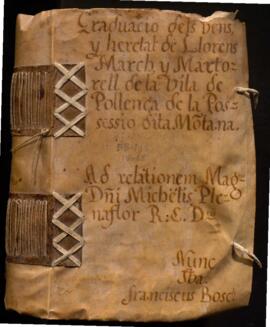 Graduacio dels bens,
y heretat de Llorens
March, y Marto-
rell de la Vila de
Pollença de la Pos-
sessio dita Mõtana.
Ad relationem Mag.
Dñi Michêlis Ple-
R. C. D.
Nunc
Franciscus Bosch